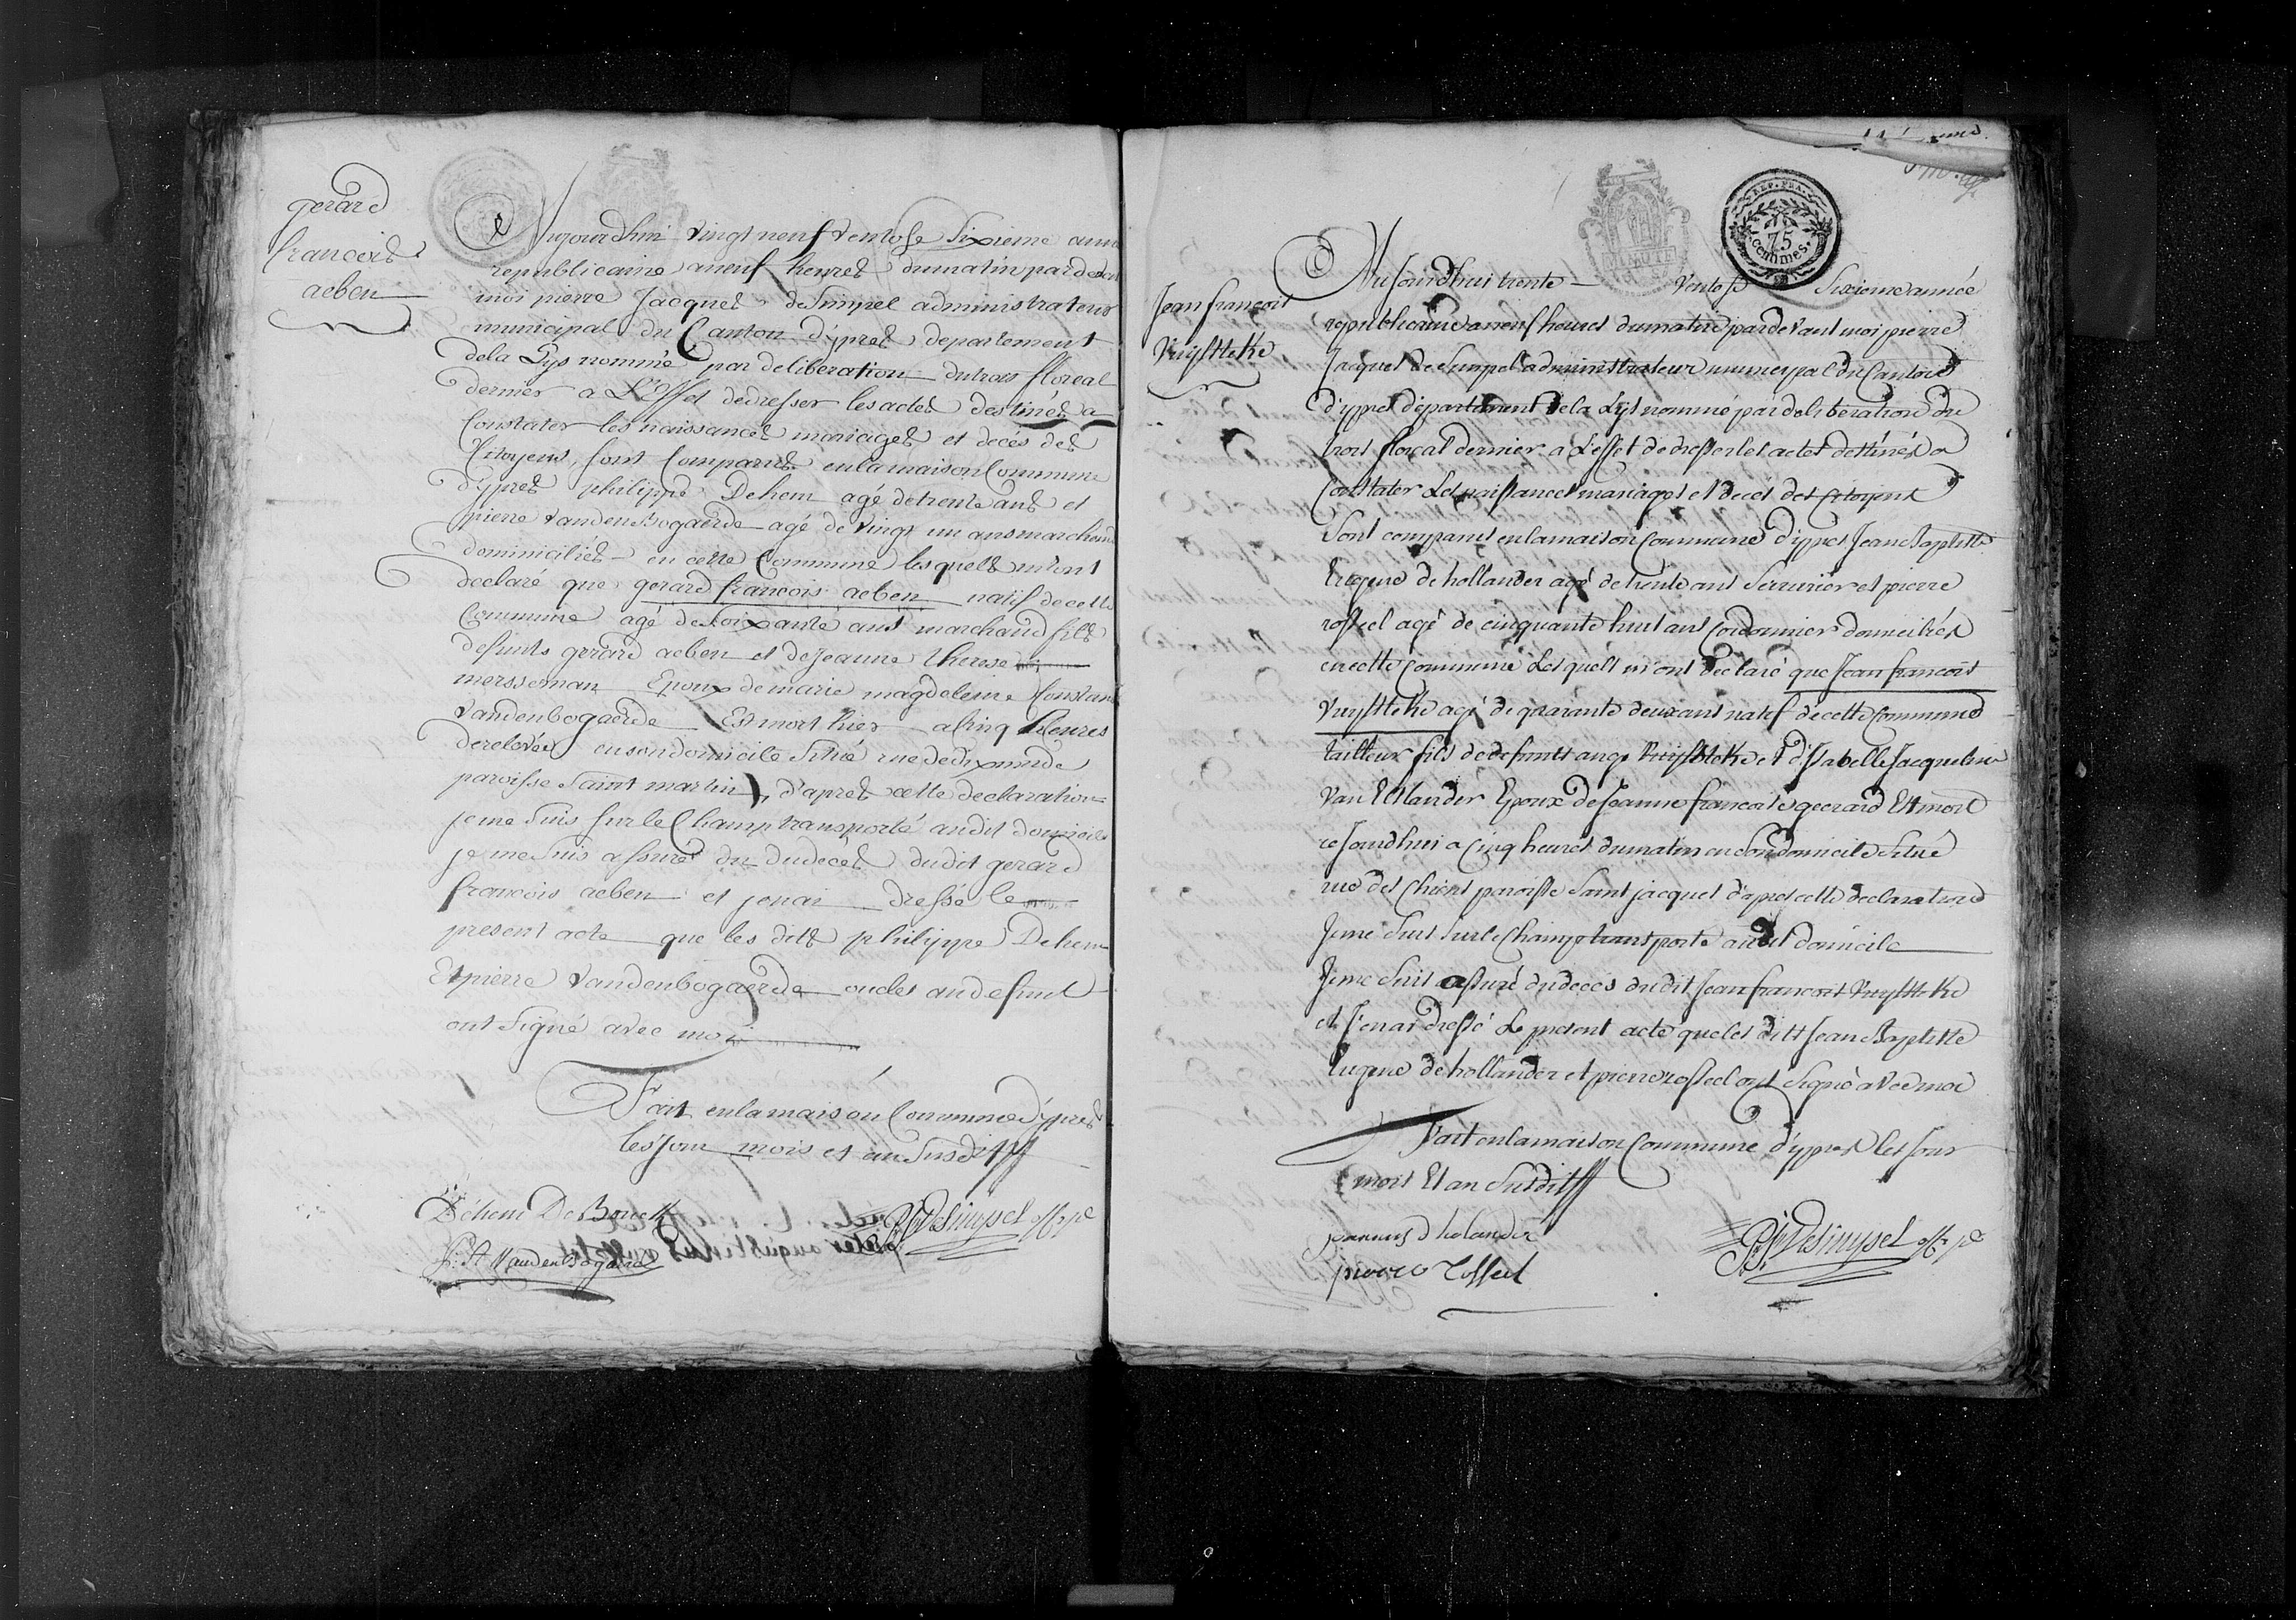 gerard
francois
aeben
Aujourdhui vingt neuf ventose Sixieme anné
republicaine a neuf heures dumatin pardevant
moi pierre Jacques deSimpel administrateur
municipal du Canton d'ypres departement
dela Lys nommé par deliberation dutrois floreal
dernier a L'Effet dedresser lesactes destinés a
Constater les naissances mariages et decés des
Citoyens, sont Comparus enlamaison Commune
d'ypres philippe Dehem agé detrente ans et
pierre vandenBogaerde agé de vingt un ans marchand
dominiciliés en cette Commune lesquels m'ont
declaré que gerard francois aeben natif decette
Commune agé desoixante ans marchand fils
defunts gerard aeben et deJeanne therese
mersseman Epoux demarie magdeleine Constan
vandenbogaerde Est mort hier a Cinq heures
derelevée ensondomicile Situé rue dedixmude
paroisse Saint martin, d'après cette declaration
jeme Suis sur le Champ transporté audit domicile
je me Suis assuré du dudecès dudit gerard
francois aeben et jenai dressé le
present acte que les dits philippe Dehem
Et pierre vandenbogaerde oncles audefunt
ont Signé avec moi
Fait enlamaison Commune d'ypres
les Jour mois et an Susdit
Dehem De
P: A VandenBogaerde
PJDeSimpel off. pc
REP. FRA.
75
centimes.
Jean francois
Vuylsteke
Aujourdhui trente Ventose Sixieme année
republicaine aneuf heures dumatin pardevant moi pierre
Jacques deSimpel administrateur municipal du Canton
d'ypres departement dela Lys nommé par deliberation du
trois floreal dernier a L'effet de dresser les actes destinés a
Constater Les naissances mariages et decés des Citoyens
Sont comparus enlamaison Commune d'ypres Jean Baptiste
Eugene de hollander agé de trente ans Serrurier et pierre
rosseel agé de cinquante huit ans Cordonnier domiciliés
encette Commune Lesquels m'ont declaré que Jean francois
Vuylsteke agé de quarante deux ans natif decette Commune
tailleur fils dedefunts ange Vuylsteke et d'Isabelle Jacqueline
Van Epoux deJeanne francoise geerard Est mort
ceJourdhui a Cinq heures dumatin enSondomicile Situé
rue des Chiens paroisse Saint jacques d'apres cette declaration
Jeme Suis Surle Champ transporté audit domicile
Jeme Suis assuré dudecés dudit Jean francois Vuylsteke
et J'enai dressé Le present acte queles dits Jean Baptiste
Eugene de hollander et pierre rosseel ont Signé avec moi
Fait enlamaison Commune d'ypres les Jour
mois Et an Susdit
d holander
pierre rosseel
PJDeSimpel off. pc